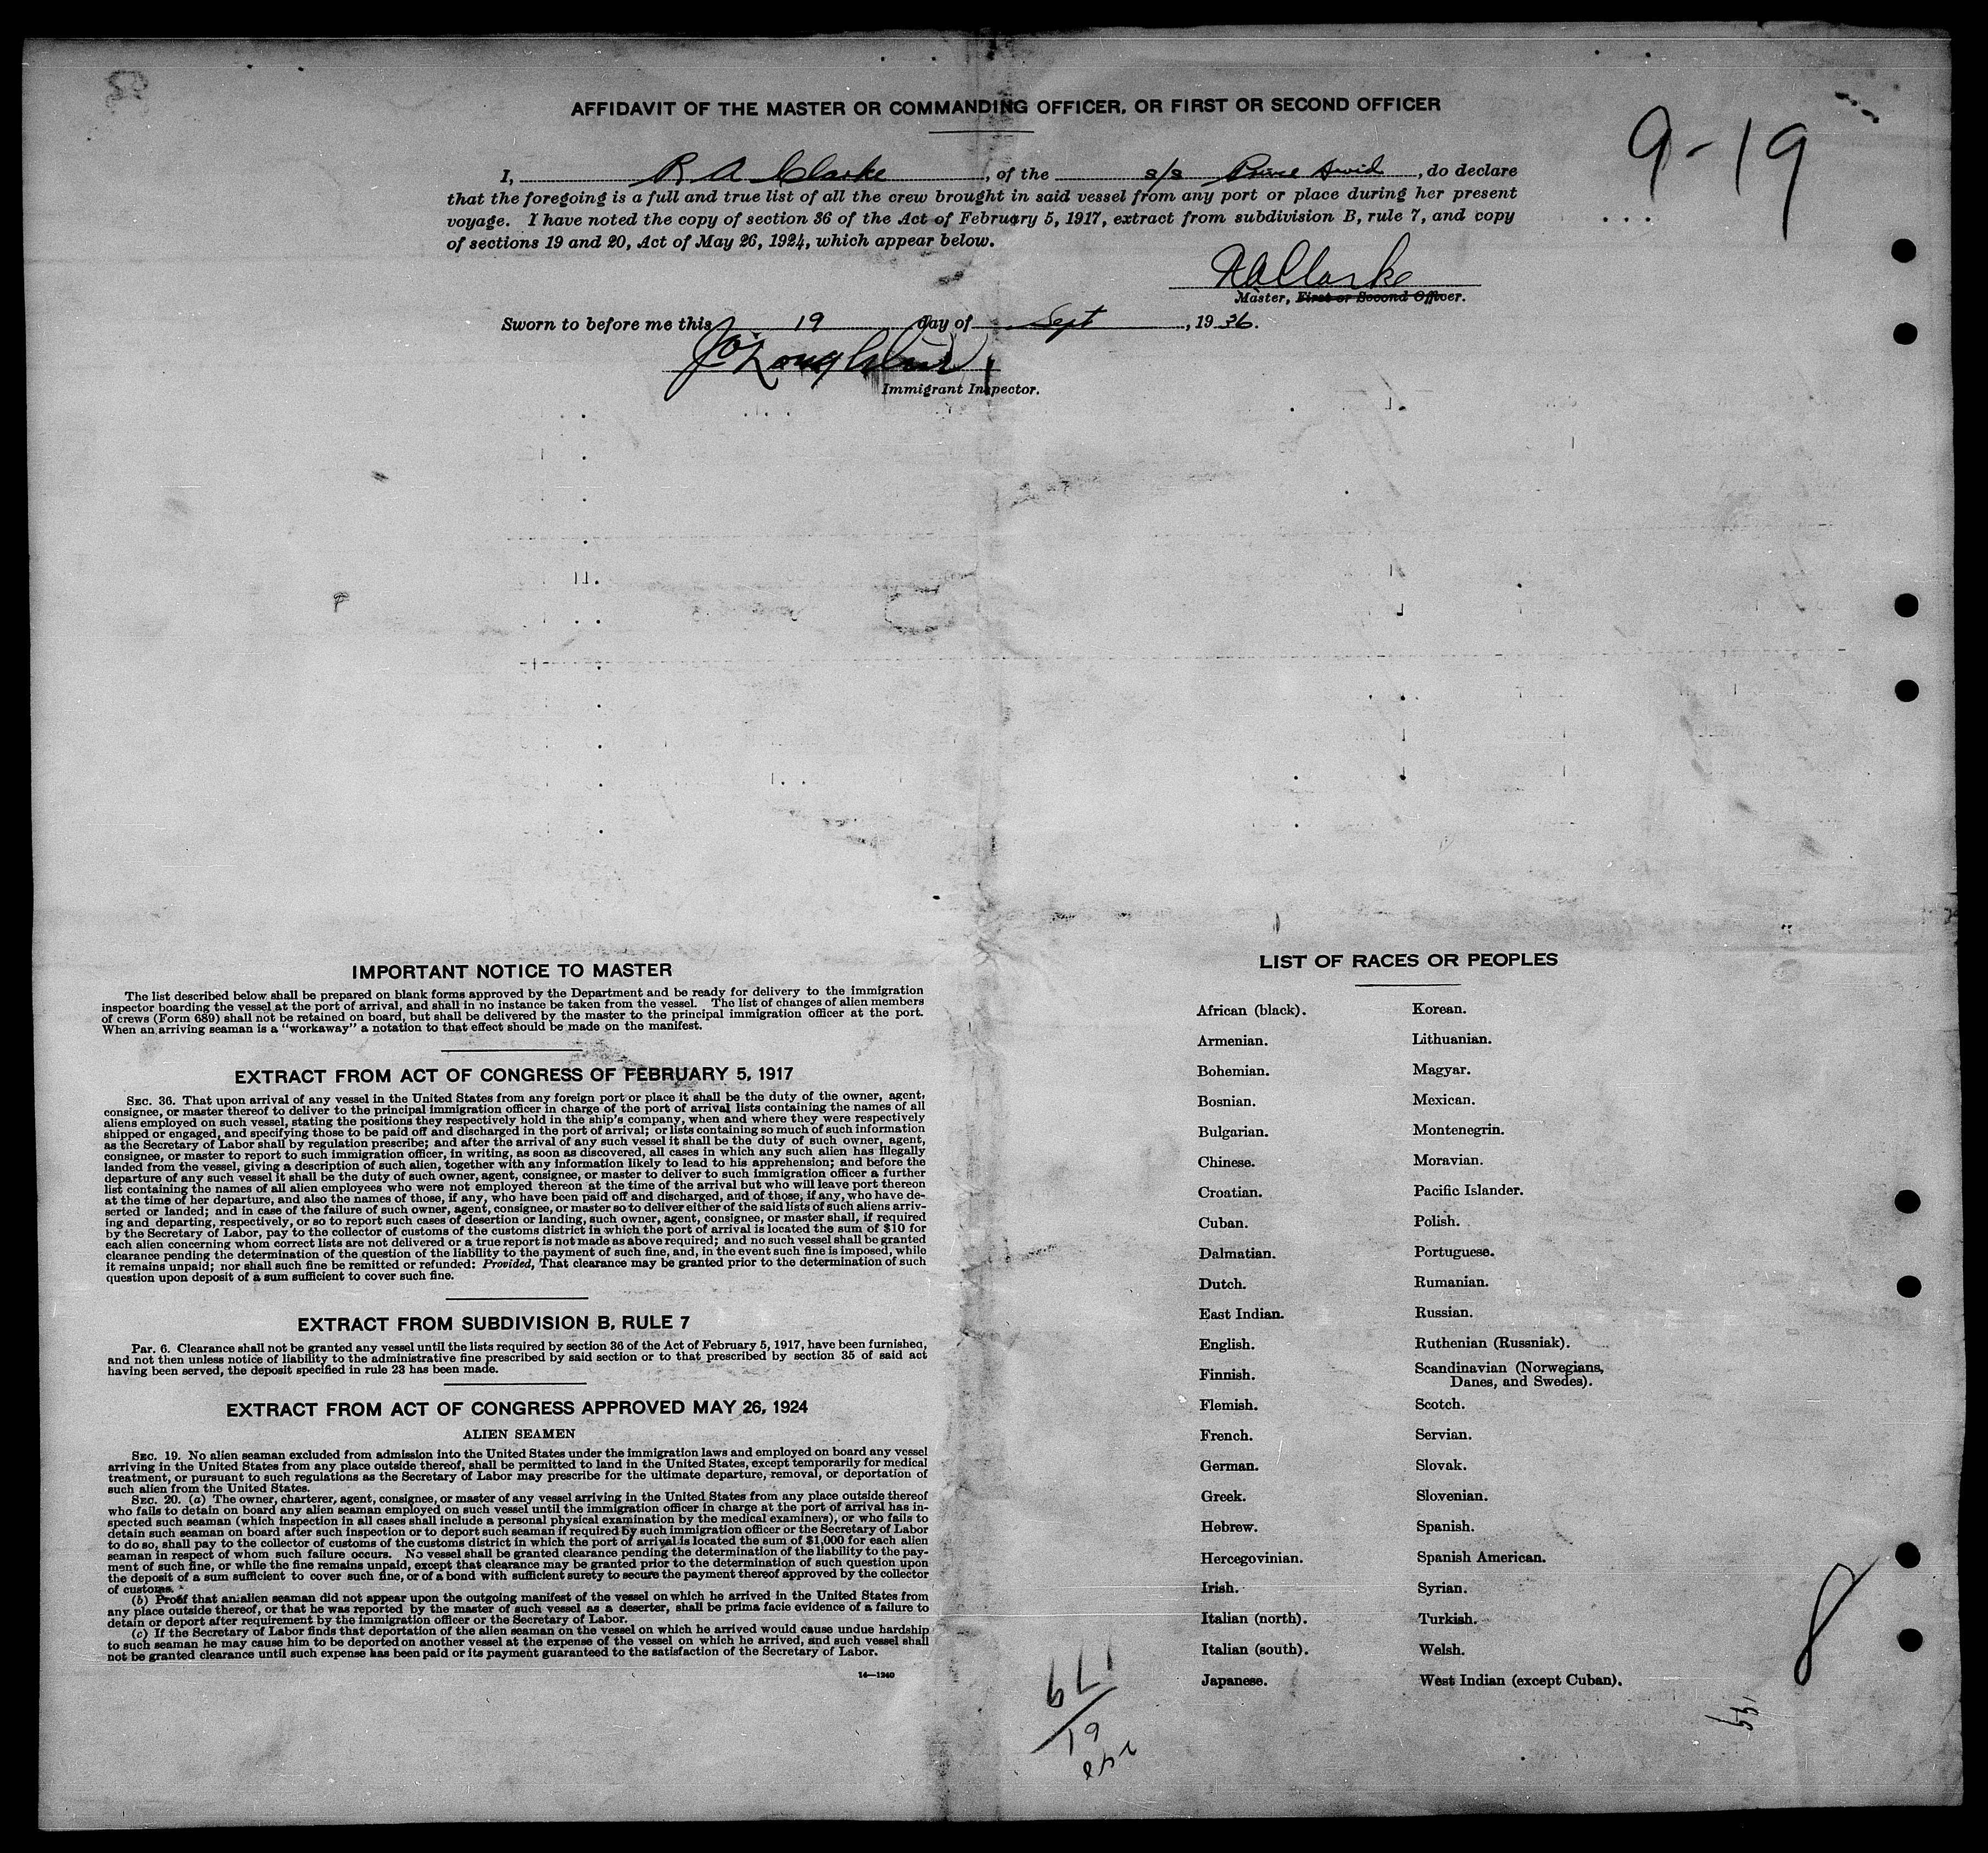 AFFIDAVIT OF THE MASTER OR COMMANDING OFFICER, OR FIRST OR SECOND OFFICER
9-19
I, R A Clarke, of the s/s Prince David, do declare
that the foregoing is a full and true list of all the crew brought in said vessel from any port or place during her present
voyage. I have noted the copy of section 36 of the Act of February 5, 1917, extract from subdivision B, rule 7, and copy
of sections 19 and 20, Act of May 26, 1924, which appear below.
R A Clarke
Master, First or Second Officer.
Sworn to before me this 19 day of Sept, 1936.
Immigrant Inspector.
IMPORTANT NOTICE TO MASTER
The list described below shall be prepared on blank forms approved by the Department and be ready for delivery to the immigration
inspector boarding the vessel at the port of arrival, and shall in no instance be taken from the vessel. The list of changes of alien members
of crews (Form 689) shall not be retained on board, but shall be delivered by the master to the principal immigration officer at the port.
When an arriving seaman is a "workaway" a notation to that effect should be made on the manifest.
EXTRACT FROM ACT OF CONGRESS OF FEBRUARY 5, 1917
SEC. 36. That upon arrival of any vessel in the United States from any foreign port or place it shall be the duty of the owner, agent,
consignee, or master thereof to deliver to the principal immigration officer in charge of the port of arrival lists containing the names of all
aliens employed on such vessel, stating the positions they respectively hold in the ship's company, when and where they were respectively
shipped or engaged, and specifying those to be paid off and discharged in the port of arrival; or lists containing so much of such information
as the Secretary of Labor shall by regulation prescribe; and after the arrival of any such vessel it shall be the duty of such owner, agent,
consignee, or master to report to such immigration officer, in writing, as soon as discovered, all cases in which any such alien has illegally
landed from the vessel, giving a description of such alien, together with any information likely to lead to his apprehension; and before the
departure of any such vessel it shall be the duty of such owner, agent, consignee, or master to deliver to such immigration officer a further
list containing the names of all alien employees who were not employed thereon at the time of the arrival but who will leave port thereon
at the time of her departure, and also the names of those, if any, who have been paid off and discharged, and of those, if any, who have de-
serted or landed; and in case of the failure of such owner, agent, consignee, or master so to deliver either of the said lists of such aliens arriv-
ing and departing, respectively, or so to report such cases of desertion or landing, such owner, agent, consignee, or master shall, if required
by the Secretary of Labor, pay to the collector of customs of the customs district in which the port of arrival is located the sum of $10 for
each alien concerning whom correct lists are not delivered or a true report is not made as above required; and no such vessel shall be granted
clearance pending the determination of the question of the liability to the payment of such fine, and, in the event such fine is imposed, while
it remains unpaid; nor shall such fine be remitted or refunded: Provided, That clearance may be granted prior to the determination of such
question upon deposit of a sum sufficient to cover such fine.
EXTRACT FROM SUBDIVISION B, RULE 7
PAR. 6. Clearance shall not be granted any vessel until the lists required by section 36 of the Act of February 5, 1917, have been furnished,
and not then unless notice of liability to the administrative fine prescribed by said section or to that prescribed by section 35 of said act
having been served, the deposit specified in rule 23 has been made.
EXTRACT FROM ACT OF CONGRESS APPROVED MAY 26, 1924
ALIEN SEAMEN
SEC. 19. No alien seaman excluded from admission into the United States under the immigration laws and employed on board any vessel
arriving in the United States from any place outside thereof, shall be permitted to land in the United States, except temporarily for medical
treatment, or pursuant to such regulations as the Secretary of Labor may prescribe for the ultimate departure, removal, or deportation of
such alien from the United States.
SEC. 20. (a) The owner, charterer, agent, consignee, or master of any vessel arriving in the United States from any place outside thereof
who fails to detain on board any alien seaman employed on such vessel until the immigration officer in charge at the port of arrival has in-
spected such seaman (which inspection in all cases shall include a personal physical examination by the medical examiners), or who fails to
detain such seaman on board after such inspection or to deport such seaman if required by such immigration officer or the Secretary of Labor
to do so, shall pay to the collector of customs of the customs district in which the port of arrival is located the sum of $1,000 for each alien
seaman in respect of whom such failure occurs. No vessel shall be granted clearance pending the determination of the liability to the pay-
ment of such fine, or while the fine remains unpaid, except that clearance may be granted prior to the determination of such question upon
the deposit of a sum sufficient to cover such fine, or of a bond with sufficient surety to secure the payment thereof approved by the collector
of customs.
(b) Proof that an alien seaman did not appear upon the outgoing manifest of the vessel on which he arrived in the United States from
any place outside thereof, or that he was reported by the master of such vessel as a deserter, shall be prima facie evidence of a failure to
detain or deport after requirement by the immigration officer or the Secretary of Labor.
(c) If the Secretary of Labor finds that deportation of the alien seaman on the vessel on which he arrived would cause undue hardship
to such seaman he may cause him to be deported on another vessel at the expense of the vessel on which he arrived, and such vessel shall
not be granted clearance until such expense has been paid or its payment guaranteed to the satisfaction of the Secretary of Labor.
14—1240
LIST OF RACES OR PEOPLES
African (black).
Armenian.
Bohemian.
Bosnian.
Bulgarian.
Chinese.
Croatian.
Cuban.
Dalmatian.
Dutch.
East Indian.
English.
Finnish.
Flemish.
French.
German.
Greek.
Hebrew.
Hercegovinian.
Irish.
Italian (north).
Italian (south).
Japanese.
Korean.
Lithuanian.
Magyar.
Mexican.
Montenegrin.
Moravian.
Pacific Islander.
Polish.
Portuguese.
Rumanian.
Russian.
Ruthenian (Russniak).
Scandinavian (Norwegians,
Danes, and Swedes).
Scotch.
Servian.
Slovak.
Slovenian.
Spanish.
Spanish American.
Syrian.
Turkish.
Welsh.
West Indian (except Cuban).
8
179
19